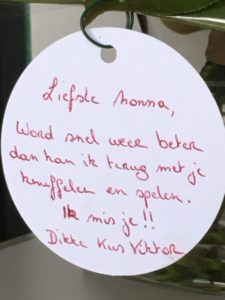 Liefste nonna,
Word snel weer beter
dan kan ik terug met je
knuffelen en spelen.
Ik mis je!!
Dikke Kus Viktor